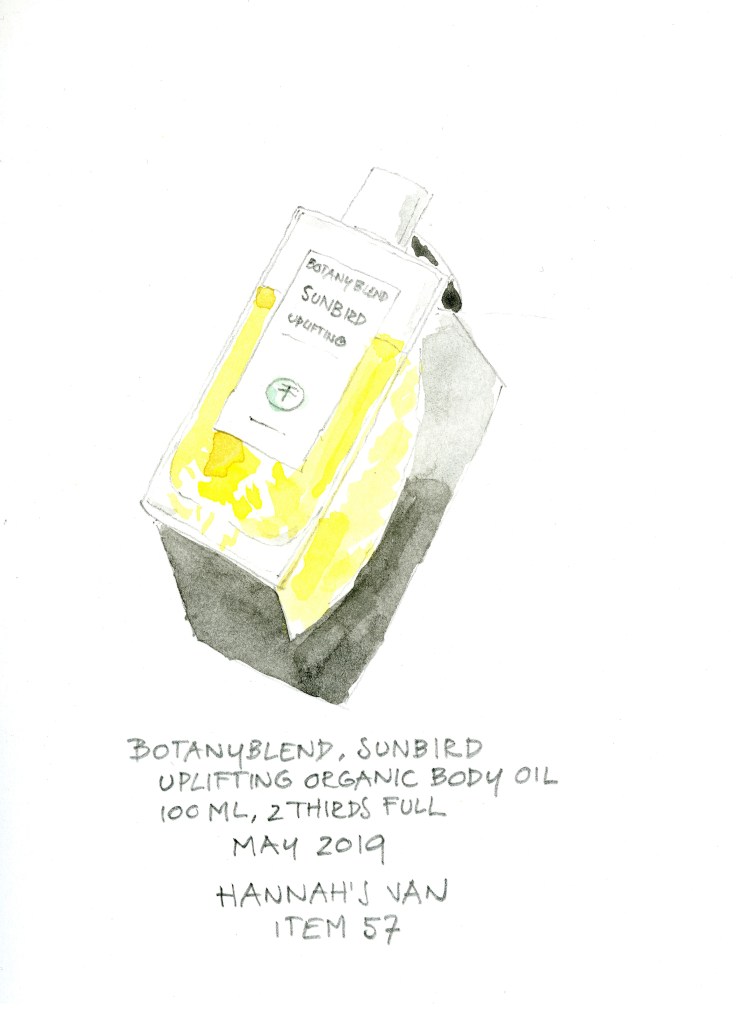 BOTANYBLEND
SUNBIRD
UPLIFTING
BOTANYBLEND, SUNBIRD
UPLIFTING ORGANIC BODY OIL
100 ML, 2 THIRDS FULL
MAY 2019
HANNAH'S VAN
ITEM 57